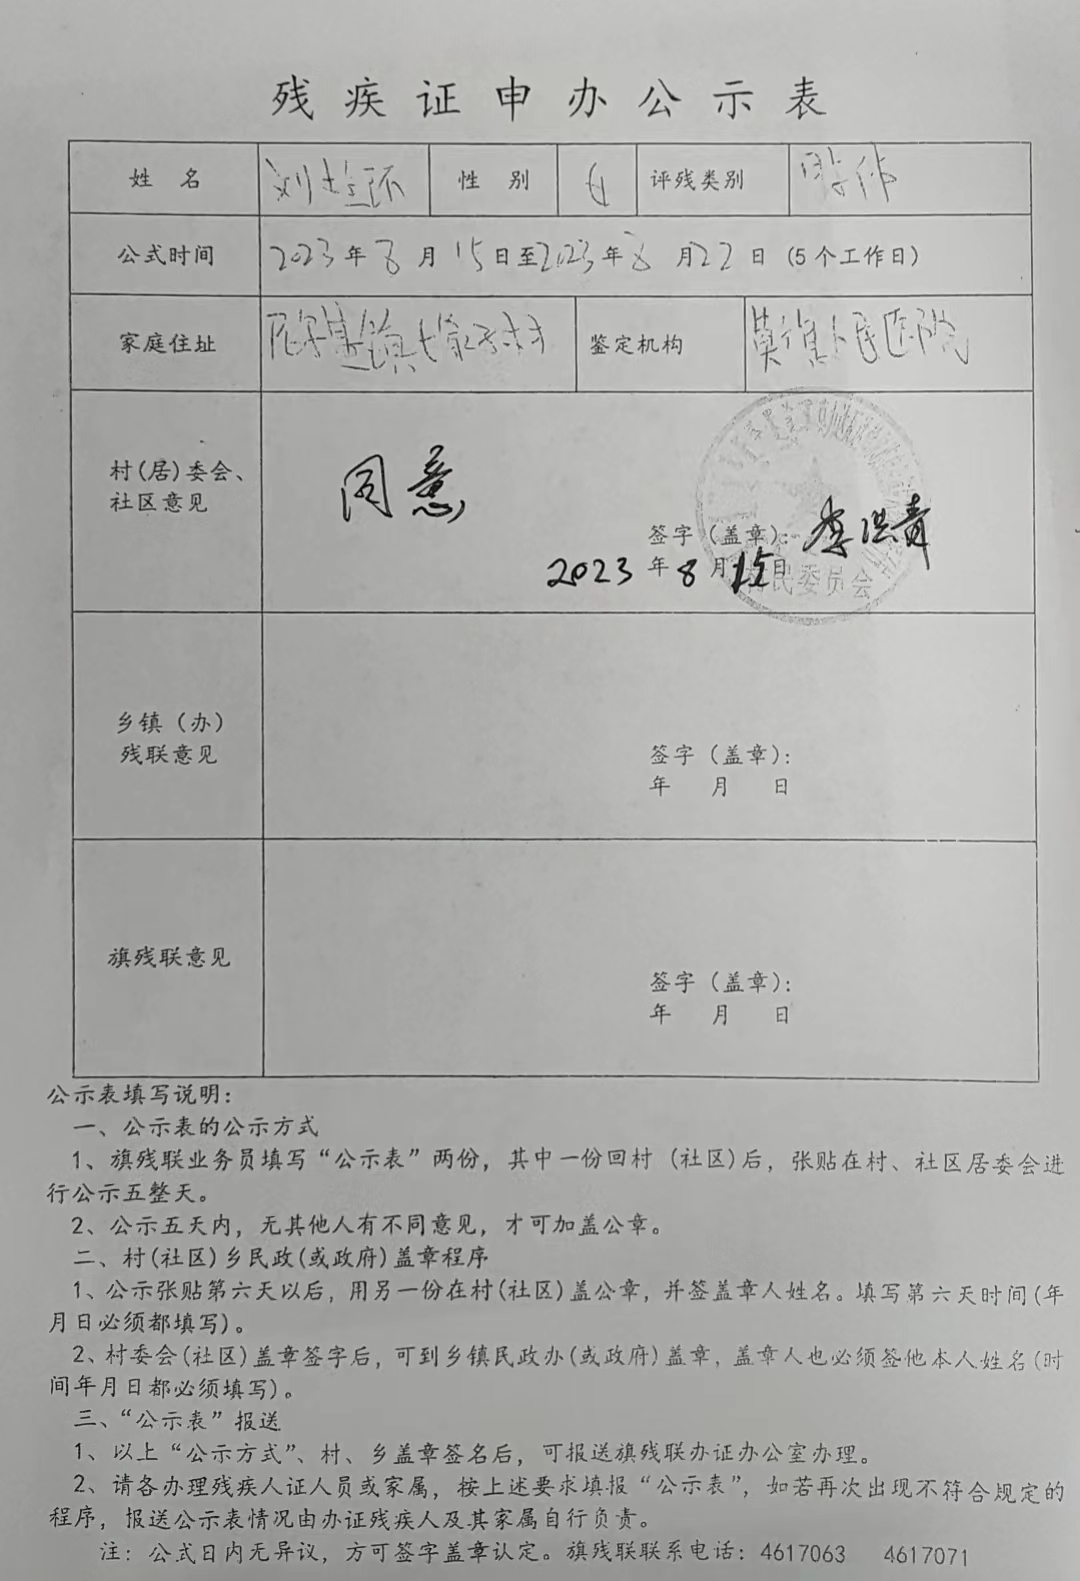 残疾证申办公示表
姓 名 性 别 女 评残类别
公式时间 2023年8月15日至2023年8月22日 (5个工作日)
家庭住址 尼尔基镇 村 鉴定机构 莫旗人民医院
村(居)委会、
社区意见
同意
签字(盖章): 李洪青
2023年8月15日
村民委员会
乡镇(办)
残联意见
签字(盖章):
年 月 日
旗残联意见
签字(盖章):
年 月 日
公示表填写说明:
一、公示表的公示方式
1、旗残联业务员填写“公示表”两份，其中一份回村(社区)后，张贴在村、社区居委会进
行公示五整天。
2、公示五天内，无其他人有不同意见，才可加盖公章。
二、村(社区)乡民政(或政府)盖章程序
1、公示张贴第六天以后，用另一份在村(社区)盖公章，并签盖章人姓名。填写第六天时间(年
月日必须都填写)。
2、村委会(社区)盖章签字后，可到乡镇民政办(或政府)盖章，盖章人也必须签他本人姓名(时
间年月日都必须填写)。
三、“公示表”报送
1、以上“公示方式”、村、乡盖章签名后，可报送旗残联办证办公室办理。
2、请各办理残疾人证人员或家属，按上述要求填报“公示表”，如若再次出现不符合规定的
程序，报送公示表情况由办证残疾人及其家属自行负责。
注: 公式日内无异议，方可签字盖章认定。旗残联联系电话: 4617063 4617071